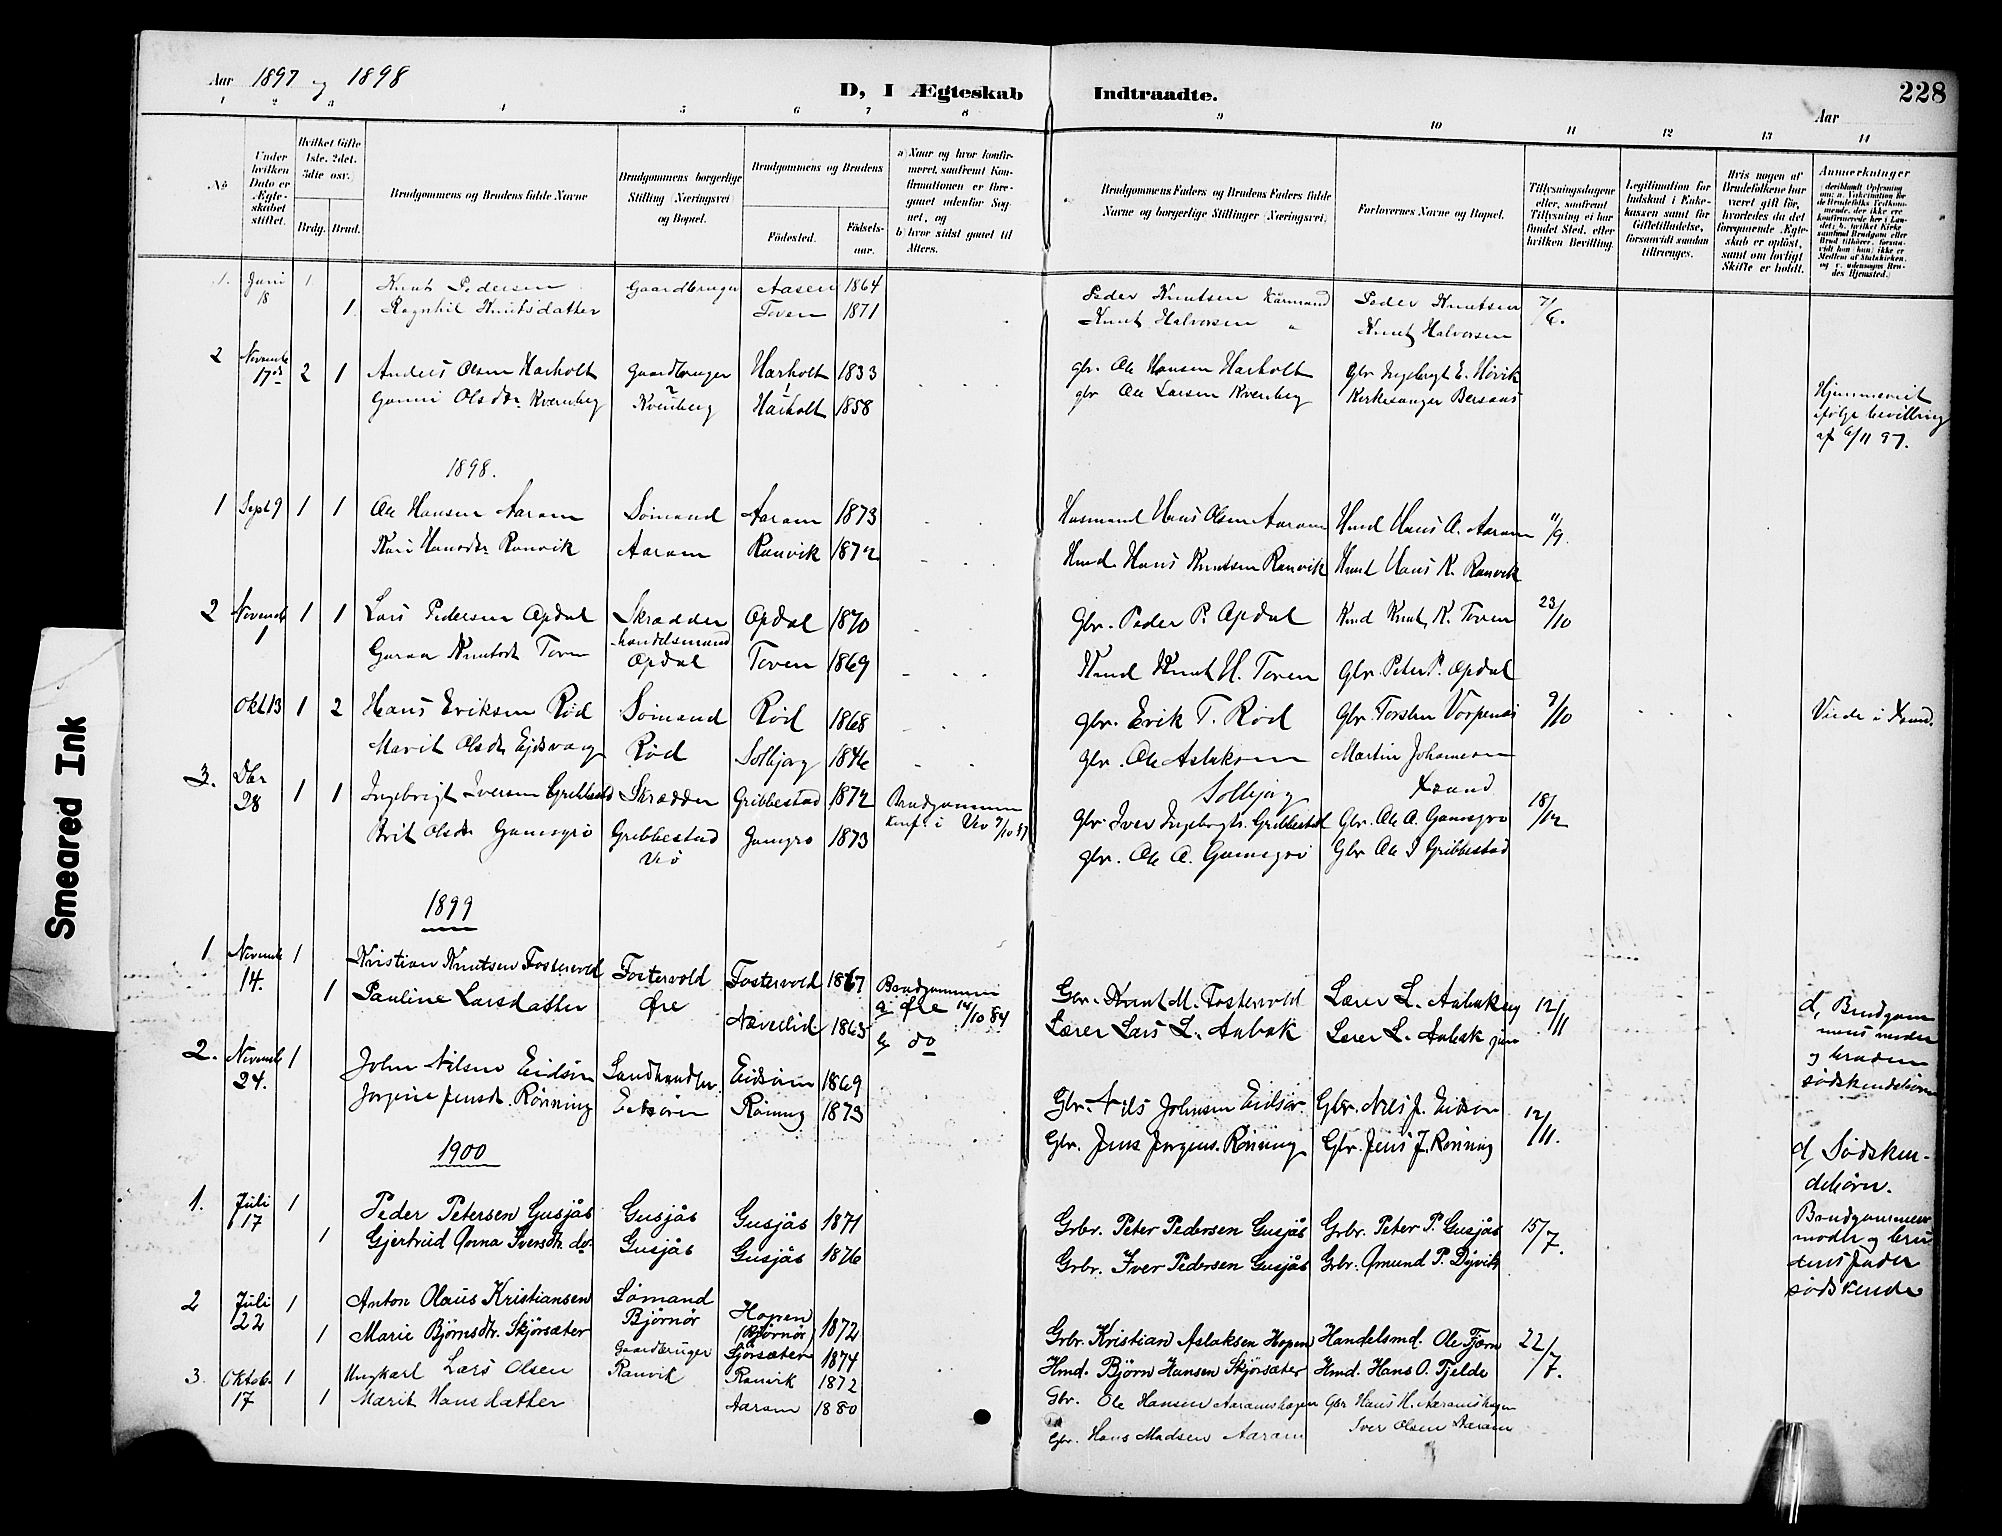 Aar 1897 og 1898
D, I Ægteskab Indtraadte.
Aar
228
1 2 3 4 5 6 7 8 9 10 11 12 13 14
No
Under hvilken Dato er Ægteskabet stiftet.
Hvilket Gifte 1ste, 2det, 3dte osv.)
Brdg. Brud.
Brudgommens og Brudens fulde Navne
Brudgommens borgerlige Stilling (Næringsvei) og Bopæl.
Brudgommens og Brudens
Fødested.
Fødsels-aar.
a) Naar og hvor konfirmeret, samfremt Konfirmationen er foregaaet udenfor Sognet, og
b) hvor sidst gaaet til Alters.
Brudgommens Faders og Brudens Faders fulde Navne og borgerlige Stillinger (Næringsvei)
Forlovernes Navne og Bopæl.
Tillysningsdagene eller, samfremt Tillysning ei har fundet Sted, efter hvilken Bevilling.
Legitimation for Indskud i Enkekassen samt for Giftetilladelse, forsaavidt saadan tiltrænges.
Hvis nogen af Brudefolkene har været gift før, hvorledes da det foregaaende Ægteskab er opløst, samt om lovligt Skifte er holdt.
Anmærkninger
1. Juni 18 1 Knut Pedersen Gaardbruger Aasen 1864 Peder Knutsen Kårmand Peder Knutsen 7/6.
1. Ragnhil Knutsdatter Toven 1871 Knut Halvorsen " Knut Halvorsen
2 Novembe 17de 2 1 Anders Olsen Harholt Gaardbruger Harholt 1833 gbr. Ole Hansen Harholt Gbr Ingebregt E. Høvik
Gunni Olsdtr Kvernberg Kvernberg Harholt 1858 gbr Ole Larsen Kvernberg Kirkesanger Bersaas
Hjemmeviet
ifølge bevilling
af 6/11 97.
1898.
1 Sept 9 1 1 Ole Hansen Aaram Sømand Aaram 1873 Husmand Hans Olsen Aaram Hmd Hans A. Aaram 11/9.
Kari Hansdtr Ranvik Aaram Ranvik 1872 Hmd. Hans Knutsen Ranvik Hmd Hans K. Ranvik
2 Novemb 1 1 1 Lars Pedersen Opdal Skrædder Opdal 1870 Gbr. Peder P. Opdal Hmd Knut K. Toven 23/10
handelsmand
Guroa Knutsdt Toven Opdal Toven 1869 Hmd Knut H. Toven Gbr. Peter P. Opdal
Okt 13 1 2 Hans Eriksen Rød Sømand Rød 1868 Gbr. Erik T. Rød Gbr. Torsten Vorpenæs 9/10
Viede i Xsund.
Marit Olsdtr Eidsvaag Rød Solbjørg 1846 Gbr. Ole Aslaksen Martin Johannesen
Solbjørg Xsund
3. Dbr 28 1 1 Ingebrigt Iversen Gribbestad Skrædder Gribbestad 1872 Brudgommen Gbr. Iver Ingebrigts. Gribbestad Gbr. Ole A. Gamsgrø 18/12
konf. i Veø 9/10 87
Brit Olsdtr Gamsgrø Gribbestad Gamgrø 1873 gbr. Ole A. Gamsgrø Gbr Ole I Gribbestad
Veø
1899
1 Novemb 14. 1 Kristian Knutsen Fostervold Fostervold Fostervold 1867 Brudgommen Gbr. Knut M. Fostervold Lærer L. Aabak 12/11
a) Øre 14/10 84
1 Pauline Larsdatter Øre Nævelid 1865 b) do Lærer Lars L. Aabak Lærer L. Aabak jun
d, Brudgom
mens moder
og bruden
sødskendebørn
2. Novemb 24. 1 John Nilsen Eidsør Landhandler Eidsøren 1869 Gbr. Nils Johnsen Eidsør Gbr. Nils J. Eidsør 12/11.
Jorgine Jensdt. Rønning Eidsøren Røning 1873 Gbr. Jens Jorgens. Rønning Gbr. Jens J. Rønning
d, Sødsken-
debørn.
1900
1. Juli 17 1 Peder Petersen Gusjås Gusjås Gusjås 1871 Grbr. Peter Pedersen Gusjås Grbr. Peter P. Gusjås 15/7.
1 Gjertrud Anna Iversdtr. do- Gusjås Gusjås 1876 Grbr. Iver Pedersen Gusjås Grbr. Amund P. Dyvik
Brudgommens
moder og bru
dens fader
sødskende
2 Juli 22 1 Anton Olaus Kristiansen Sømand Hopen 1872 Grbr. Kristian Aslaksen Hopen Handelsmd. Ole Fjørn 22/7.
Bjørnør (Bjørnør)
1 Marie Bjørnsdtr. Skjørsæter Sjørsæter 1874 Hmd. Bjørn Hansen Skjørsæter Hmd. Hans O. Fjelde
3. Oktob. 17 1 Ungkarl Lars Olsen Gaardbruger Ranvik Ranvik 1872 Gbr. Ole Hansen Aaramshagen Gbr Hans H. Aaramshagen
1 Marit Hansdatter Aaram 1880 Gbr. Hans Madsen Aaram Iver Olsen Aaram
Smeared Ink